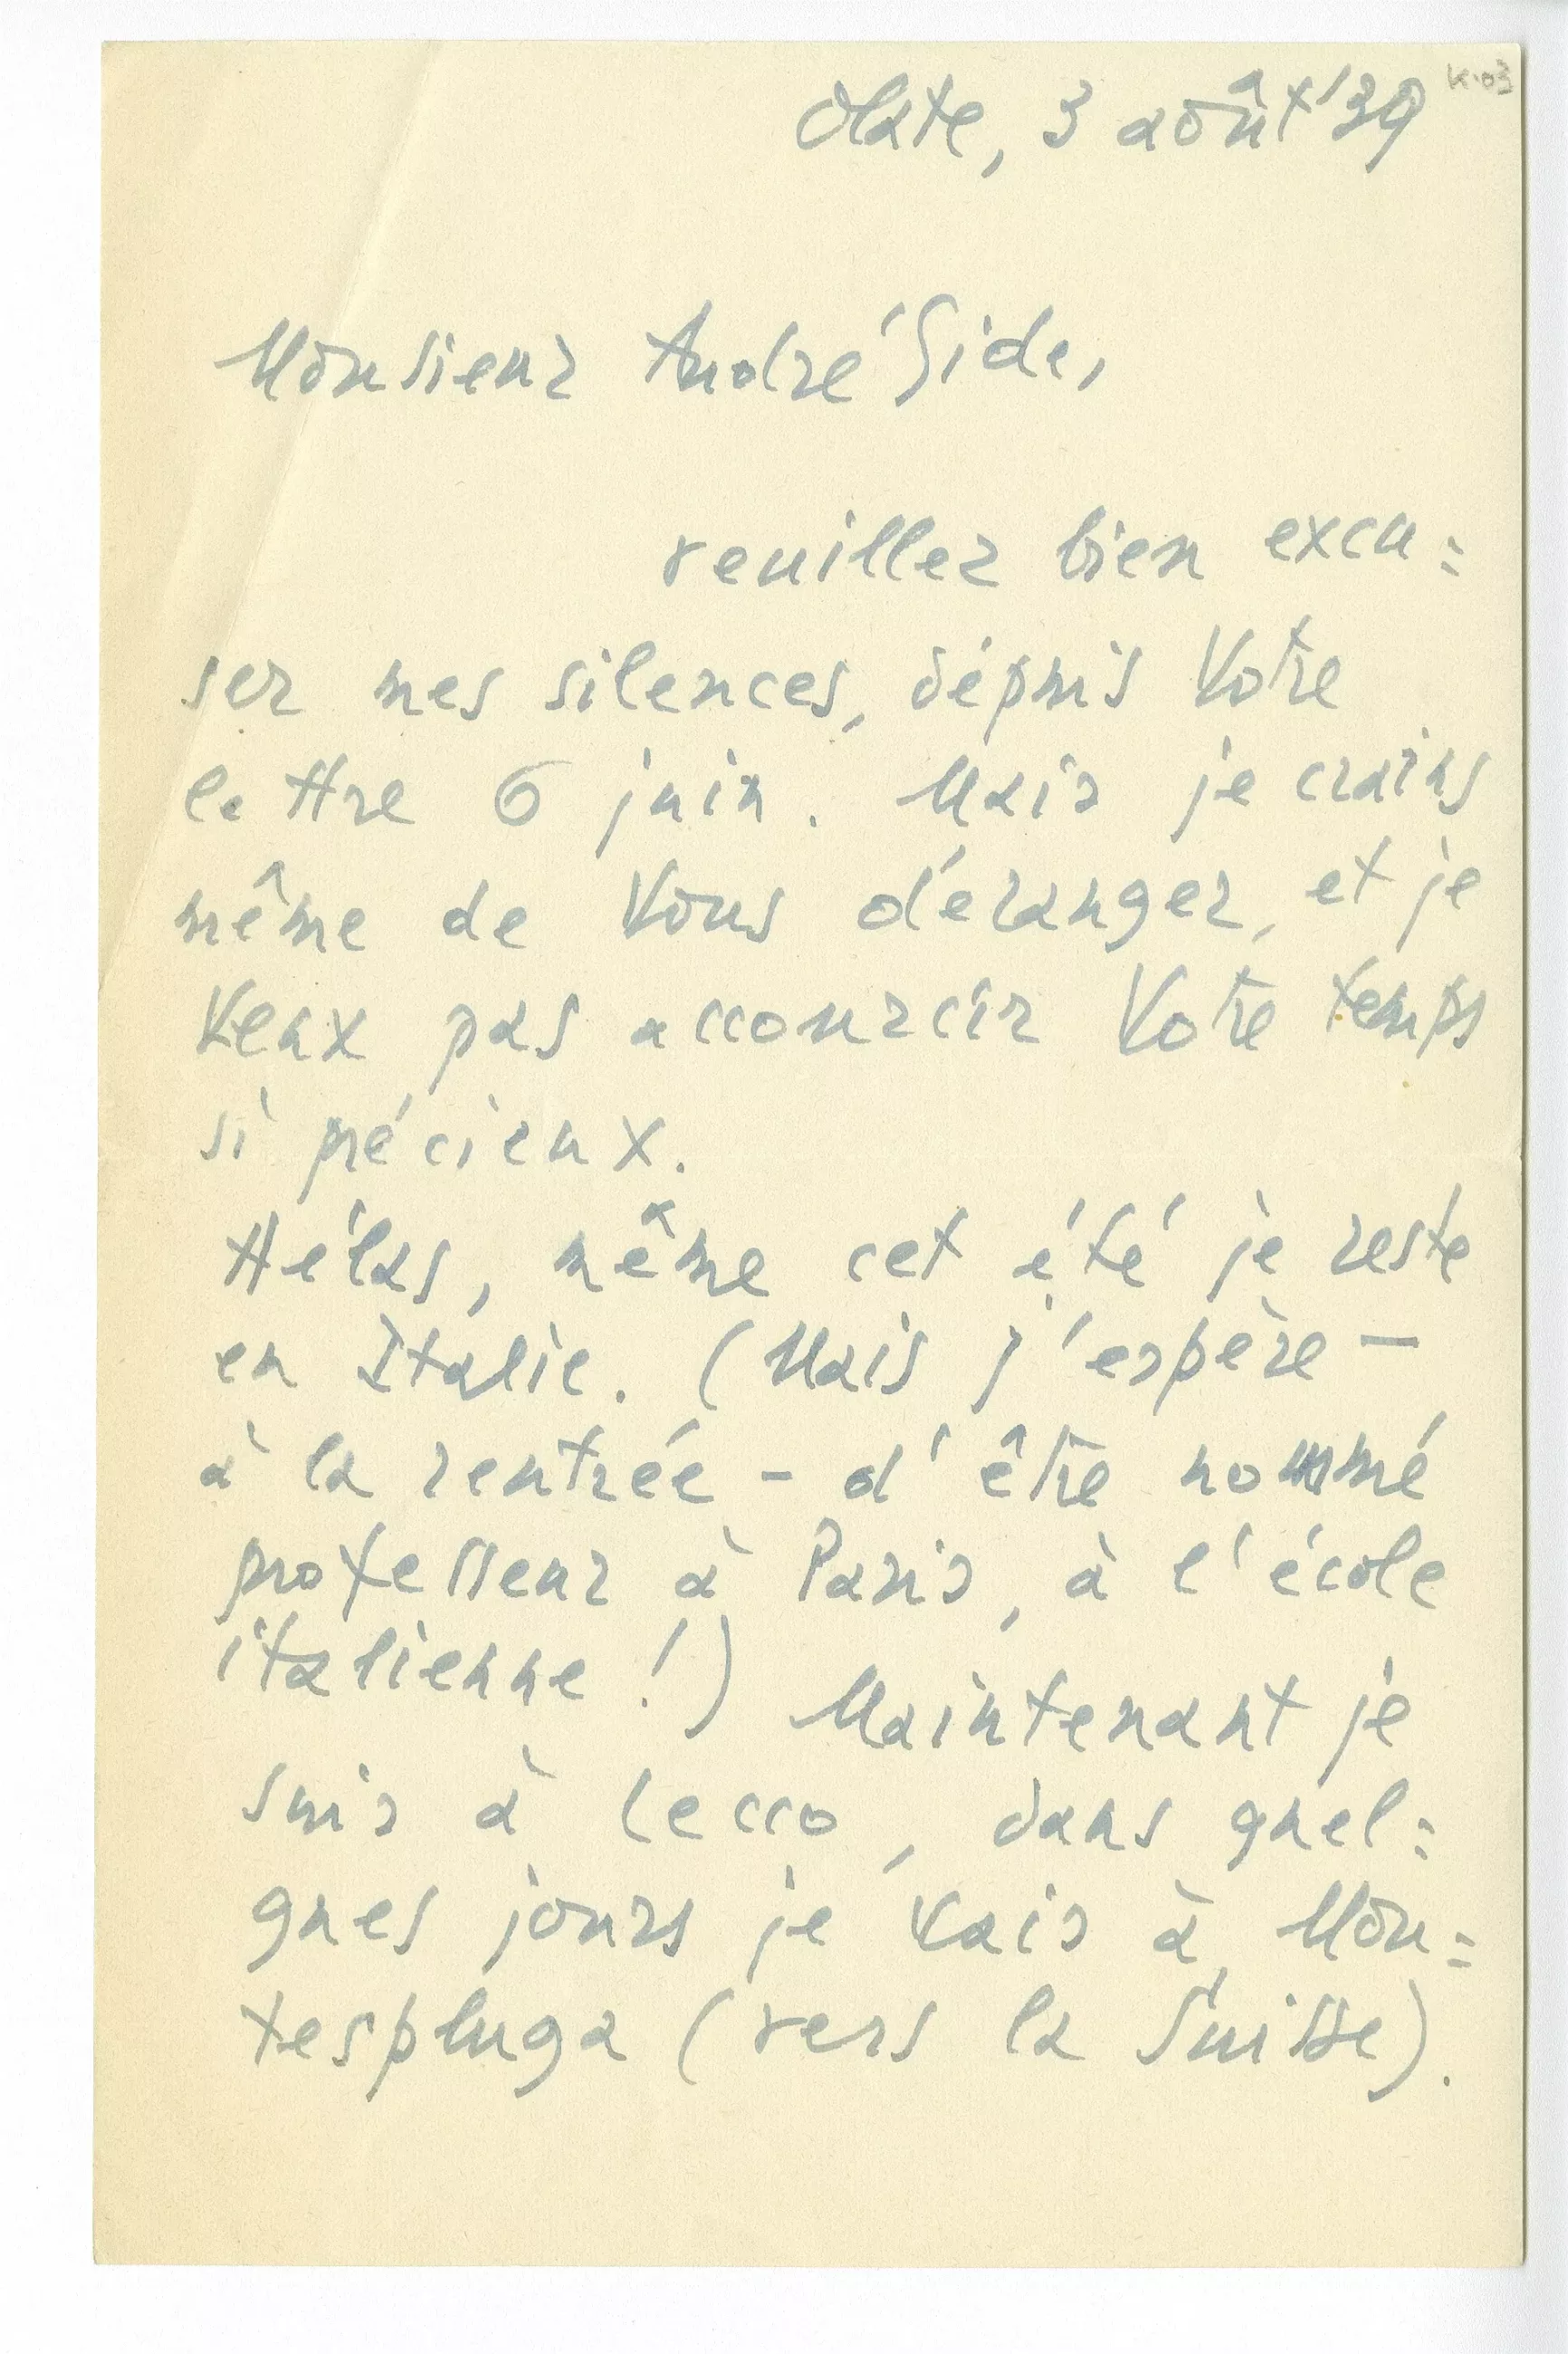 Olate, 3 août '39
K.03
Monsieur André Gide,
veuillez bien excu=
ser mes silences, dépuis Votre
lettre 6 juin. Mais je crains
même de Vous déranger, et je
veux pas accourcir Votre temps
si précieux.
Hélas, même cet été je reste
en Italie. (Mais j'espère -
à la rentrée - d'être nommé
professeur à Paris, à l'école
italienne !) Maintenant je
suis à Lecco, dans quel=
ques jours je vais à Mon=
tespluga (vers la Suisse).